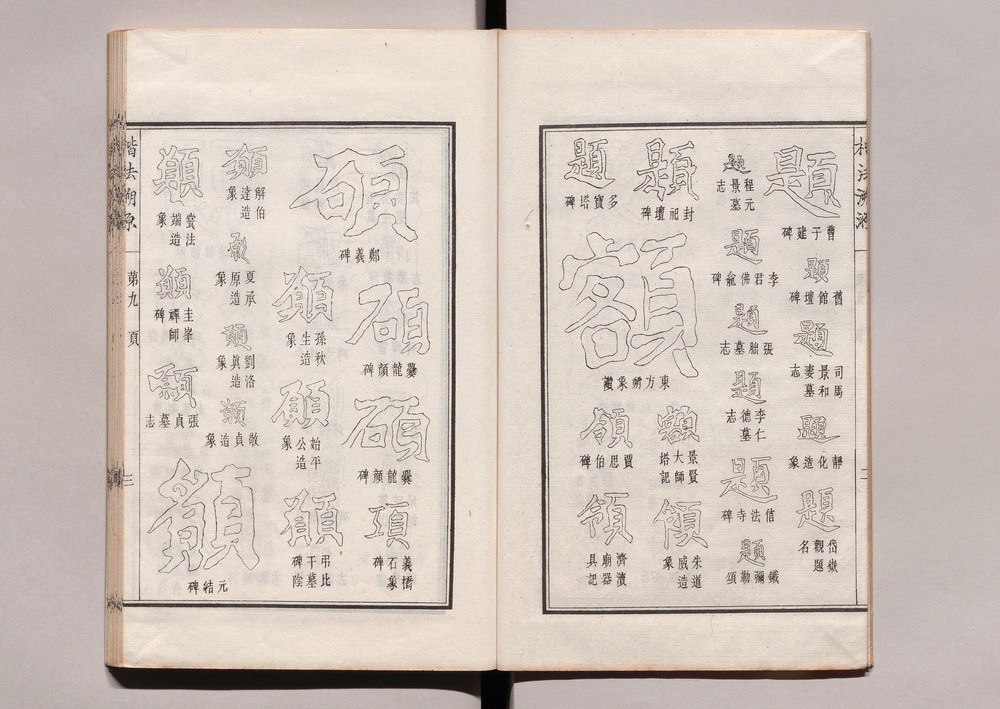 題
曹子建碑
題
舊館壇碑
題
司馬景和妻墓志
題
靜化造象
題
岱嶽觀題名
題
程元景墓志
題
李君佛龕碑
題
張朏墓志
題
李仁德墓志
題
信法寺碑
題
鐵彌勒頌
題
封祀壇碑
題
多寶塔碑
額
東方朔象讚
額
景賢大師塔記
領
賈思伯碑
領
朱道威造象
領
濟瀆廟器具記
碩
鄭羲碑
碩
爨龍顏碑
碩
爨龍顏碑
項
義橋石象碑
顚
孫秋生造象
顧
始平公造象
顚
弔比干墓碑陰
解伯達造象
夏承原造象
劉洛眞造象
敬貞造象
法端造象
圭峯禪師碑
張貞墓志
元結碑
楷法溯原
第九
頁
三